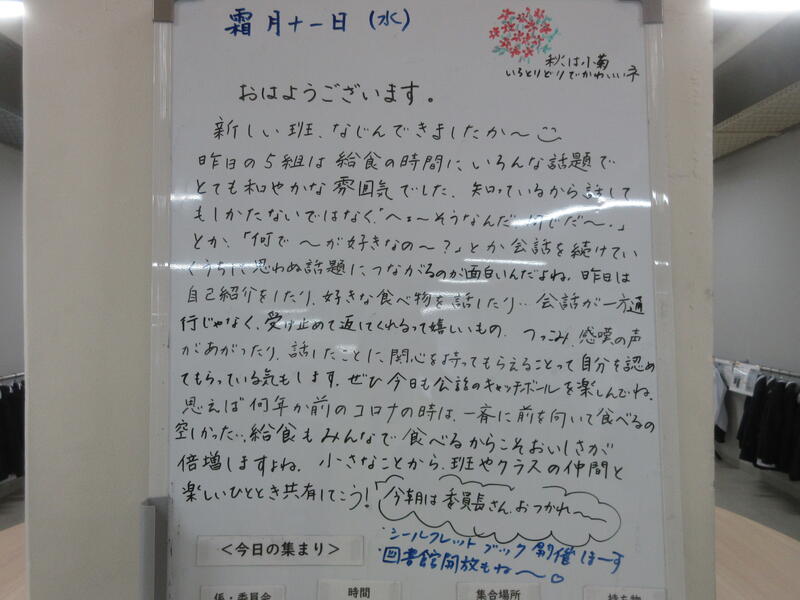 霜月十一日(水)
秋は小菊
いろとりどりでかわいいネ
おはようございます。
新しい班、なじんできましたか〜
昨日の5組は給食の時間に、いろんな話題で
とても和やかな雰囲気でした。知っているから話して
もしかたないではなく、「へェ〜そうなんだ、何でだ〜。」
とか、「何で〜が好きなの〜?」とか会話を続けてい
くうちに思わぬ話題につながるのが面白いんだよね。昨日は
自己紹介をしたり、好きな食べ物を話したり…会話が一方通
行じゃなく、受け止めて返してくれるって嬉しいもの。つっこみ、感嘆の声
があがったり、話したことに関心を持ってもらえることって自分を認め
てもらっている気もします。ぜひ今日も会話のキャッチボールを楽しんでね。
思えば何年か前のコロナの時は、一斉に前を向いて食べるの
空しかった…給食もみんなで食べるからこそおいしさが
倍増しますよね。小さなことから、班やクラスの仲間と
楽しいひととき共有してこう!
今朝は委員長さん、おつかれ〜
・シールクレットブック 開催
・図書館開放もね〜。
<今日の集まり>
係・委員会 時間 集合場所 持ち物